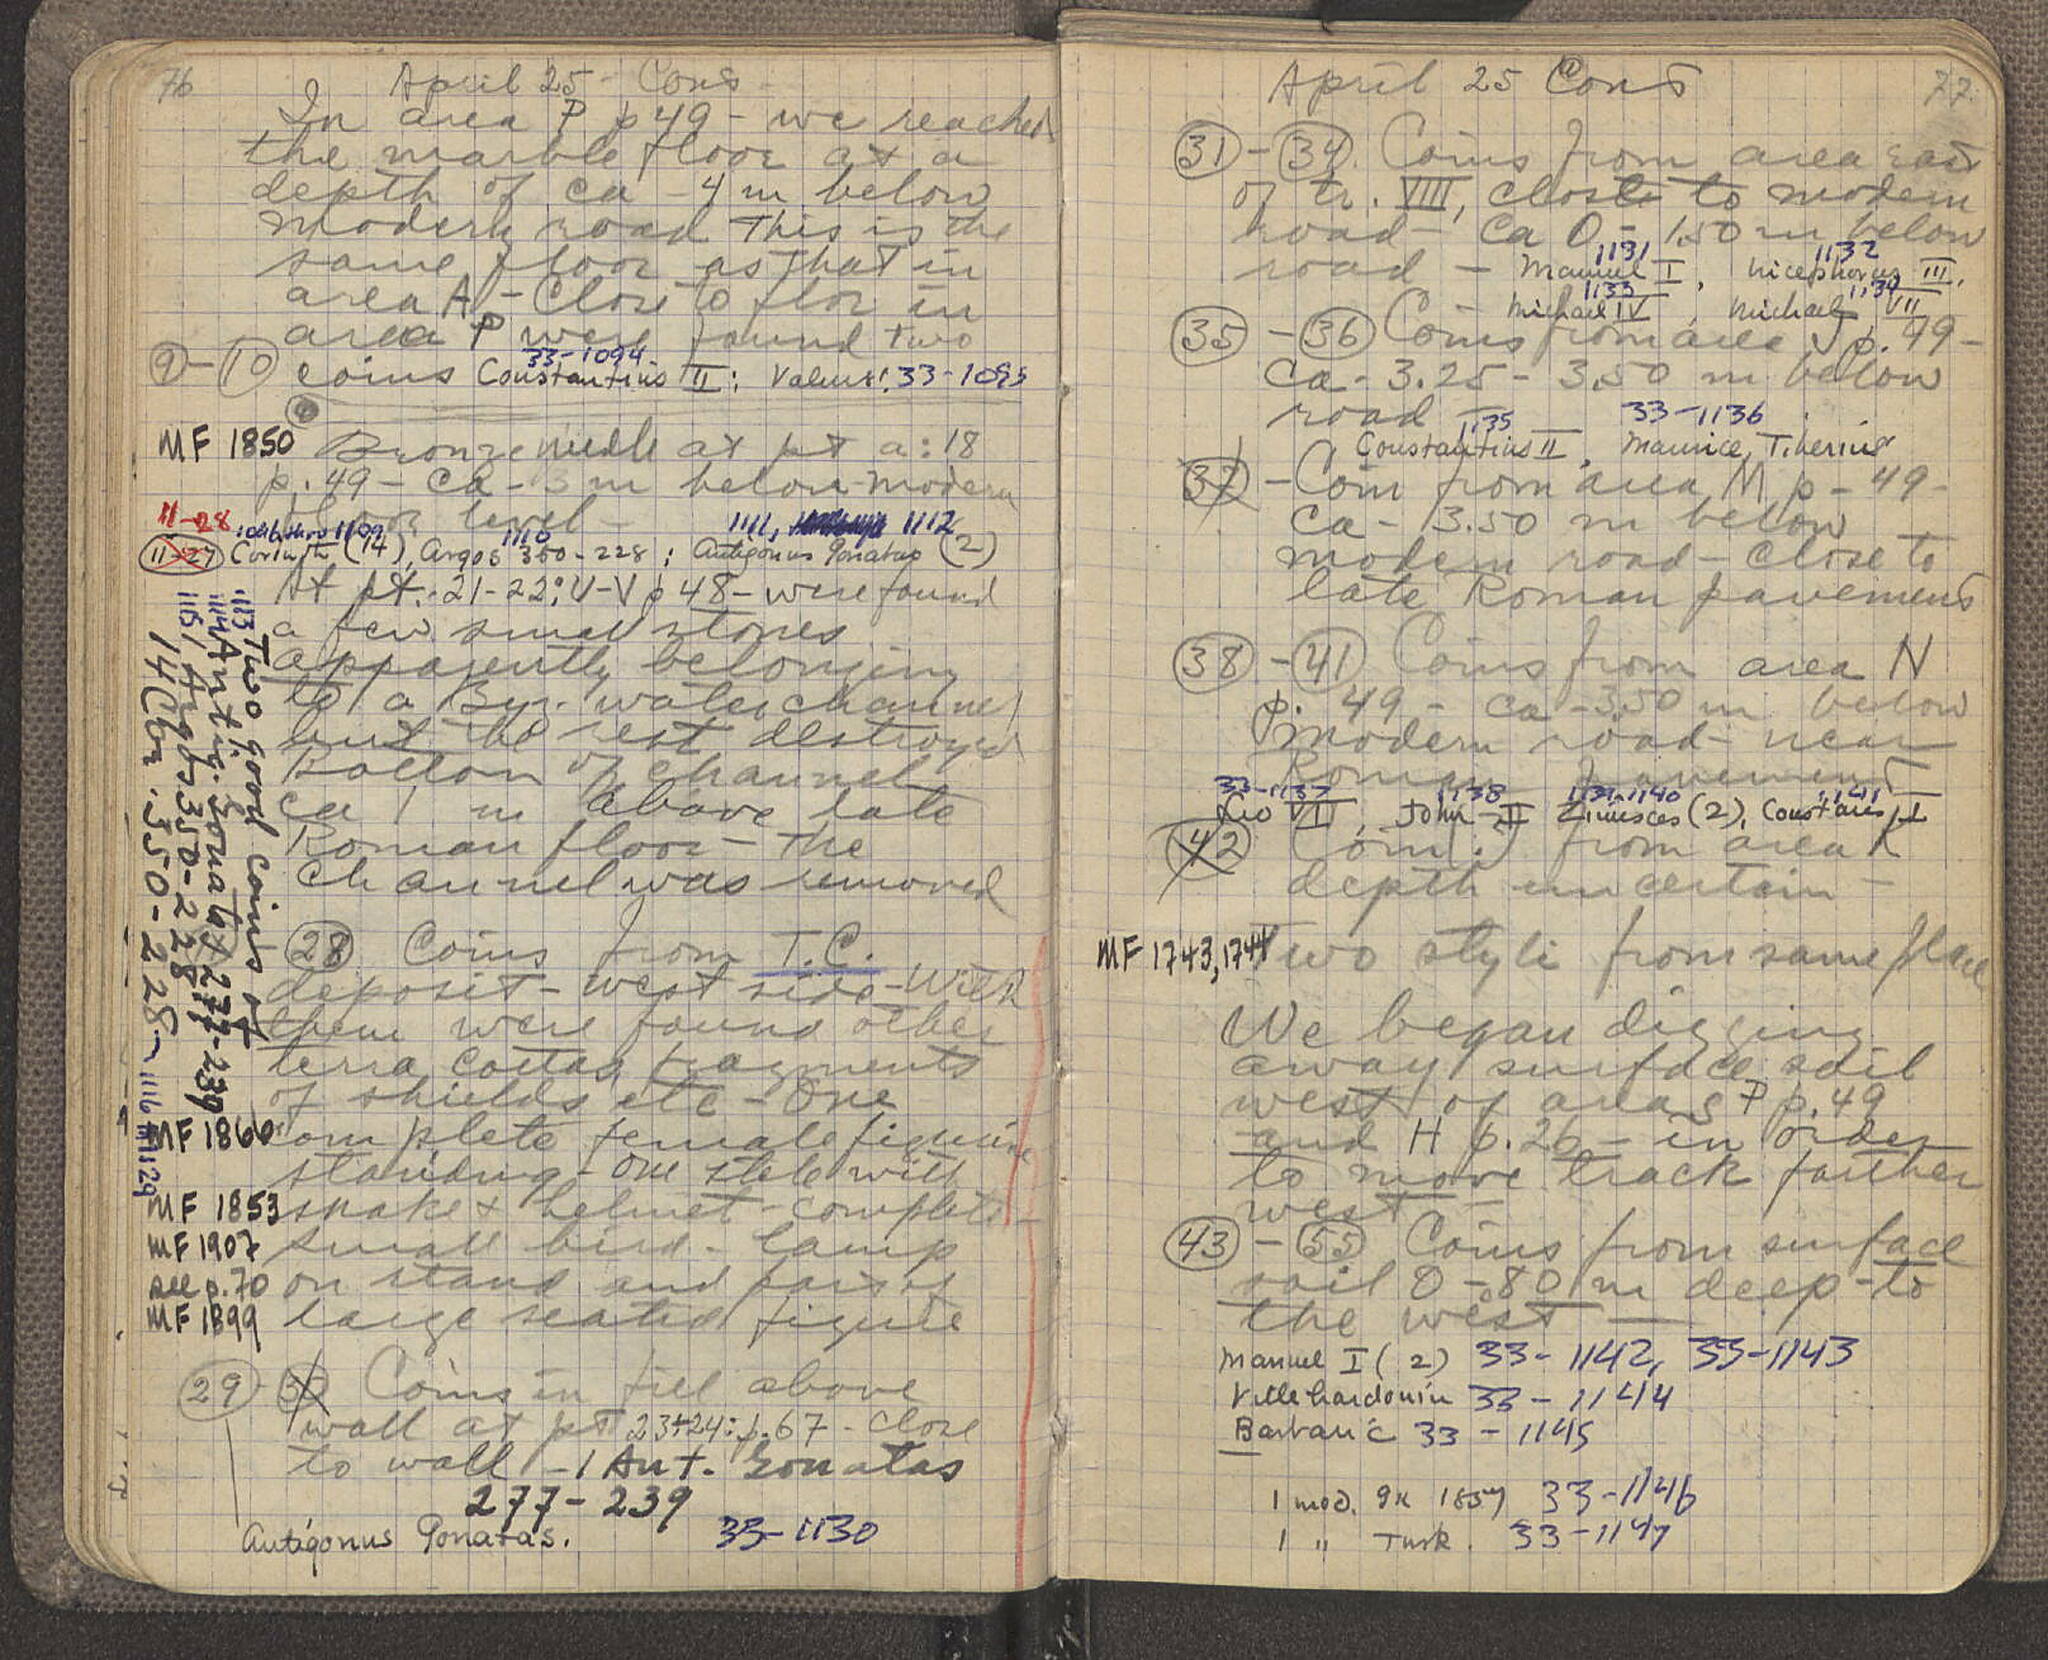 76
April 25 - Cons -
In area P p 49 - we reached
the marble floor at a
depth of ca - 4 m below
modern road This is the
same floor as that in
area A - Close to flor in
area P were found two
33-1094
9 - 10 coins Constantius II ; Valens! 33-1095
MF 1850 Bronze needle at pt a:18
p. 49 - ca - 3 m below modern
floor level -
11-28 1096 thro 1109 1110 1111, 1112
11-27 Corinth (14), Argos 350-228 ; Antigonus Gonatas (2)
At pt. 21-22: V-V p 48 - were found
a few small stones
apparently belonging
to a Byz. water channel
but the rest destroyed
Bottom of channel
ca 1 m above late
Roman floor - the
channel was removed
28 Coins from T.C.
deposit - west side - With
them were found other
terra cottas, fragments
of shields etc - One
MF 1866 complete female figurine
standing - one stele with
MF 1853 snake & helmet - complete -
MF 1907 small bird - lamp
see p. 70 on stand and part of
MF 1899 large seated figure
29 - 30 Coins in fill above
wall at pt 23+24: p. 67 - close
to wall - 1 Ant. Gonatas
277 - 239
Antigonus Gonatas. 33-1130
1113 Two good coins of
1114 Antig. Gonatas 277-239
1115 1 Argos 350-228
14 Cor. 350-228 - 1116 1129
77
April 25 Cont
31 - 34 Coins from area east
of tr. VIII, close to modern
road - ca 0 - 1.50 m below
1131 1132
road - Manuel I, Nicephorus III,
1133 1134
Michael IV, Michael VII
35 - 36 Coins from area J p. 49 -
ca - 3.25 - 3.50 m below
road -
1135 33-1136
Constantius II, Maurice Tiberius
37 - Coin from area M p - 49 -
ca - 3.50 m below
modern road - close to
late Roman pavement
38 - 41 Coins from area N
p. 49 - ca - 3.50 m below
modern road - near
Roman pavement
33-1137 1138 1139-1140 1141
Leo VI, John II Zimisces (2), Constans I
42 Coin (?) from area K
depth uncertain -
MF 1743, 1744 Two styli from same place
We began digging
away surface soil
west of areas P p. 49
and H p. 26 - in order
to move track farther
west -
43 - 55 Coins from surface
soil 0 - 80 m deep - to
the west -
Manuel I (2) 33-1142, 33-1143
Villehardouin 33-1144
Barbaric 33-1145
1 mod. gk 1857 33-1146
1 " Turk. 33-1147